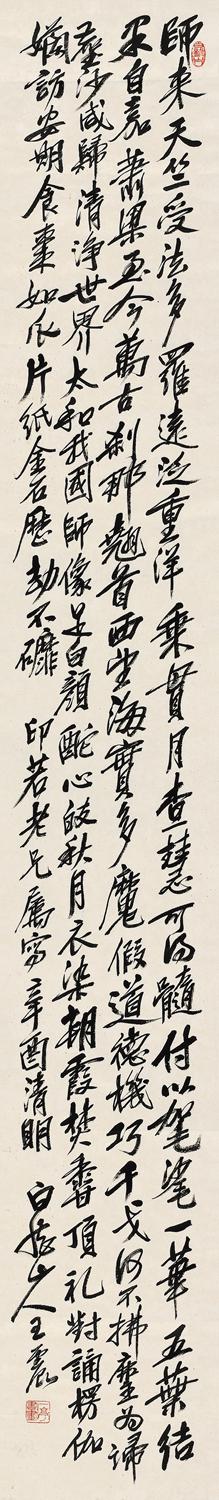 師來天竺受法多羅遠泛重洋乘貫月查慧可得髓付以袈裟一華五葉結
果自嘉蕭梁至今萬古剎那翹首西望海寶多魔假道德機巧干戈何不拂塵為掃
沙咸歸清淨世界太和我圖師像足白顏酡心皎秋月衣染朝霞焚香頂礼對誦楞伽
訪安期食棗如瓜片紙金石歷劫不磨 印若老兄屬寫辛酉清明 白龍山人王震